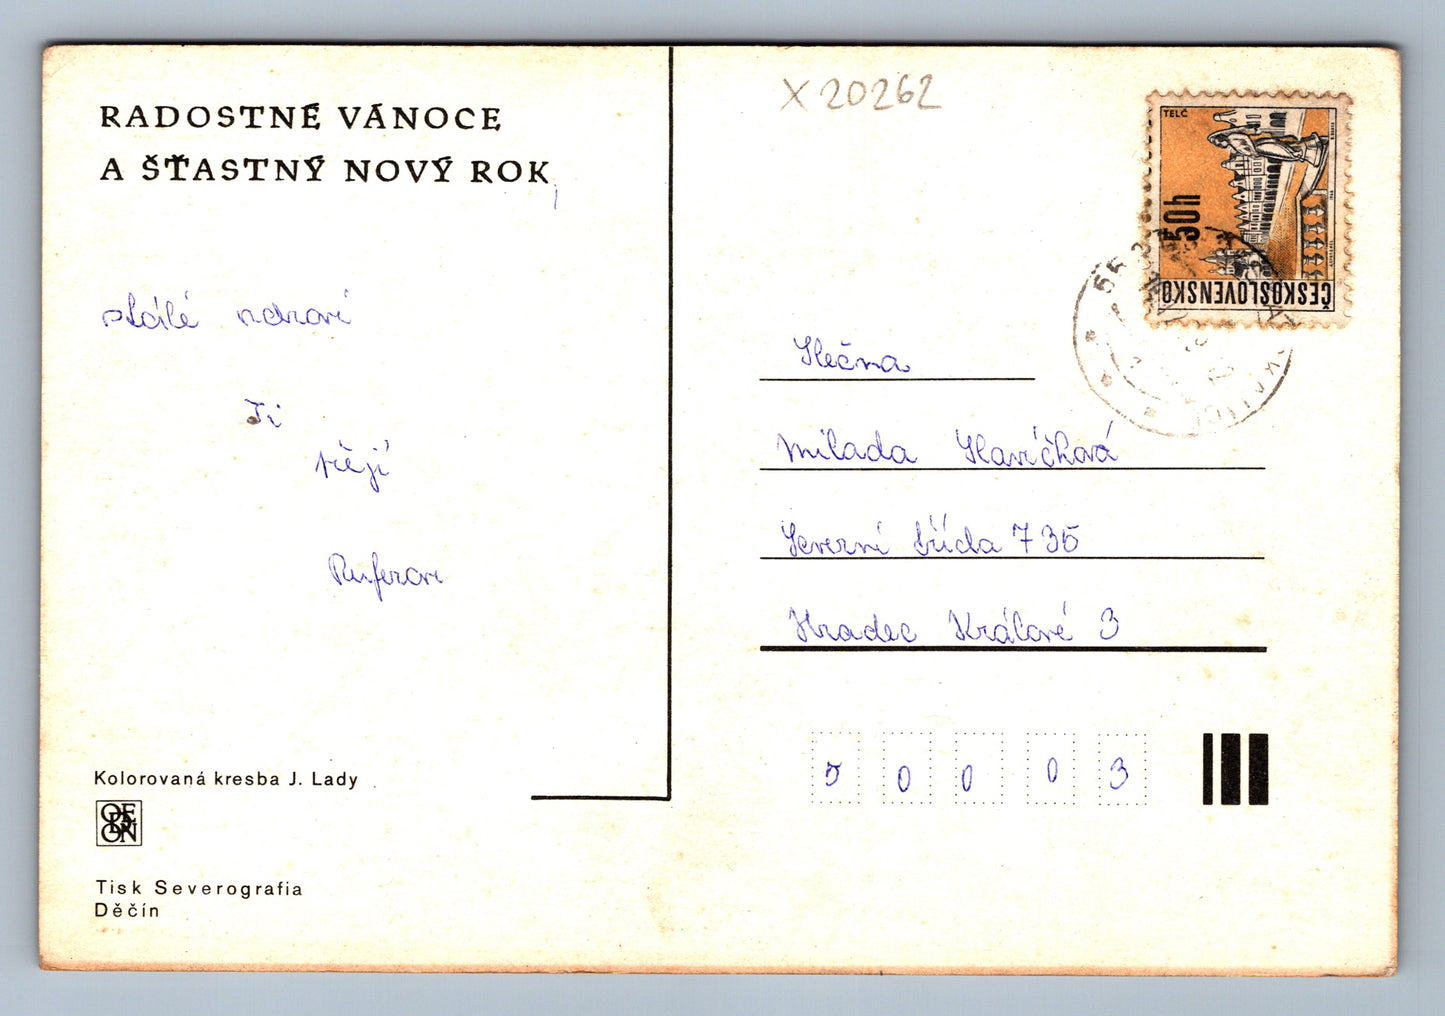 RADOSTNÉ VÁNOCE
A ŠŤASTNÝ NOVÝ ROK
stálé zdraví
Ti
přejí
Ruferovi
Kolorovaná kresba J. Lady
ODEON
Tisk Severografia
Děčín
X 20262
TELČ
50h
ČESKOSLOVENSKO
Slečna
Milada Slavíčková
Severní třída 735
Hradec Králové 3
5 0 0 0 3